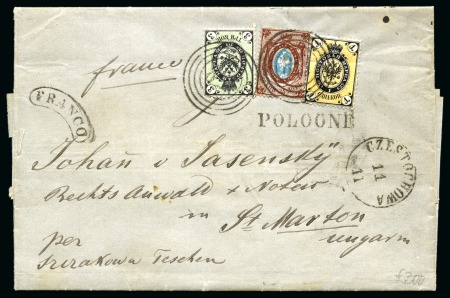 franco
FRANCO
POLOGNE
CZĘSTOCHOWA
14
11
Johañ v Jasenskÿ
Rechts Anwald & Notar
in St Marton
ungarn
per
Szczakowa Teschen